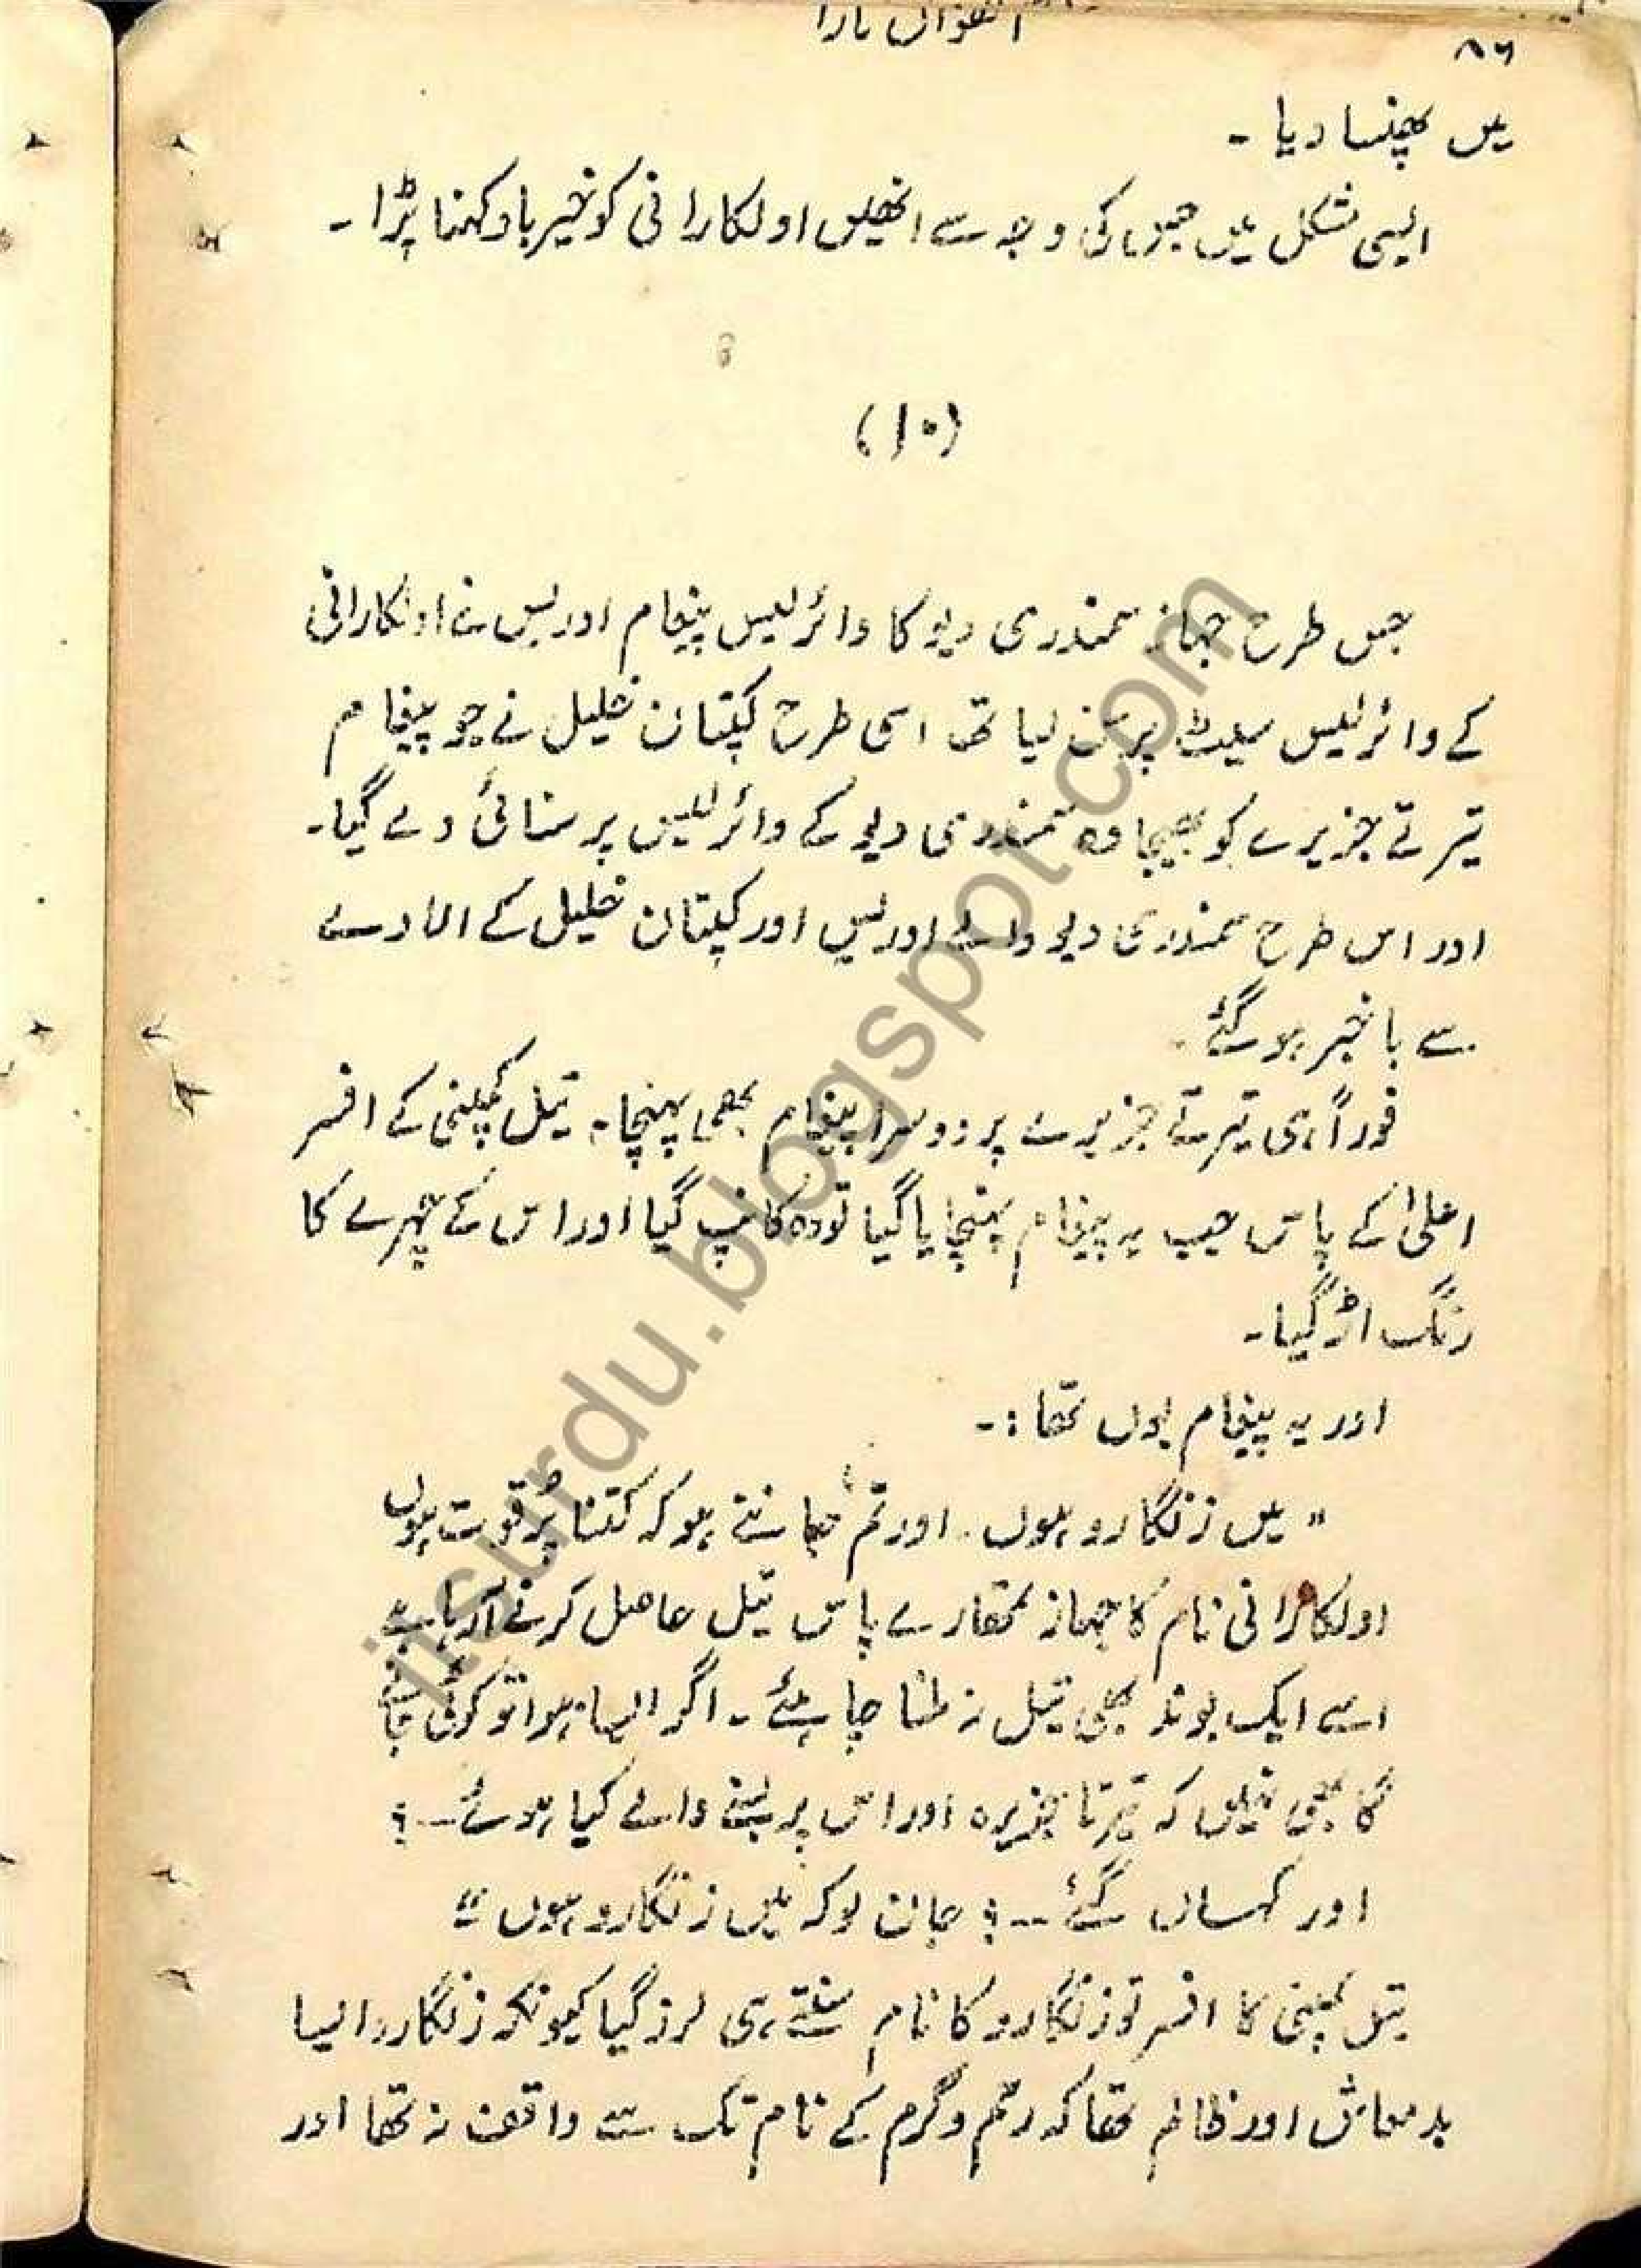 ۸۶
میں پھنسا دیا۔
ایسی مشکل میں جس کی وجہ سے انھیں اولکارانی کو خیر باد کہنا پڑا۔
(۱۰)
جس طرح جہاز سمندری دیو کا وائرلیس پیغام ادریس نے اولکارانی
کے وائرلیس سیٹ پر سن لیا تھا اسی طرح کپتان خلیل نے جو پیغام
تیرتے جزیرے کو بھیجا وہ سمندری دیو کے وائرلیس پر سنائی دے گیا۔
اور اس طرح سمندری دیو والے ادریس اور کپتان خلیل کے ارادے
سے باخبر ہو گئے۔
فوراً ہی تیرتے جزیرے پر دوسرا پیغام بھی پہنچا۔ تیل کمپنی کے افسر
اعلیٰ کے پاس جب یہ پیغام پہنچایا گیا تو وہ کانپ گیا اور اس کے چہرے کا
رنگ اڑ گیا۔
اور یہ پیغام یوں تھا :-
"میں زنگارو ہوں۔ اور تم جانتے ہو کہ کتنا پُر قوت ہوں
اولکارانی نام کا جہاز تمھارے پاس تیل حاصل کرنے آ رہا ہے
اسے ایک بوند بھی تیل نہ ملنا چاہئے۔ اگر ایسا نہ ہوا تو کوئی جانے
گا بھی نہیں کہ تیرتا جزیرہ اور اس پر بسنے والے کیا ہوئے ـــ ؟
اور کہاں گئے ـــ ؟ جان لو کہ میں زنگارو ہوں"
تیل کمپنی کا افسر تو زنگارو کا نام سنتے ہی لرز گیا کیونکہ زنگارو ایسا
بدمعاش اور ظالم تھا کہ رحم و کرم کے نام تک سے واقف نہ تھا اور
itsurdu.blogspot.com